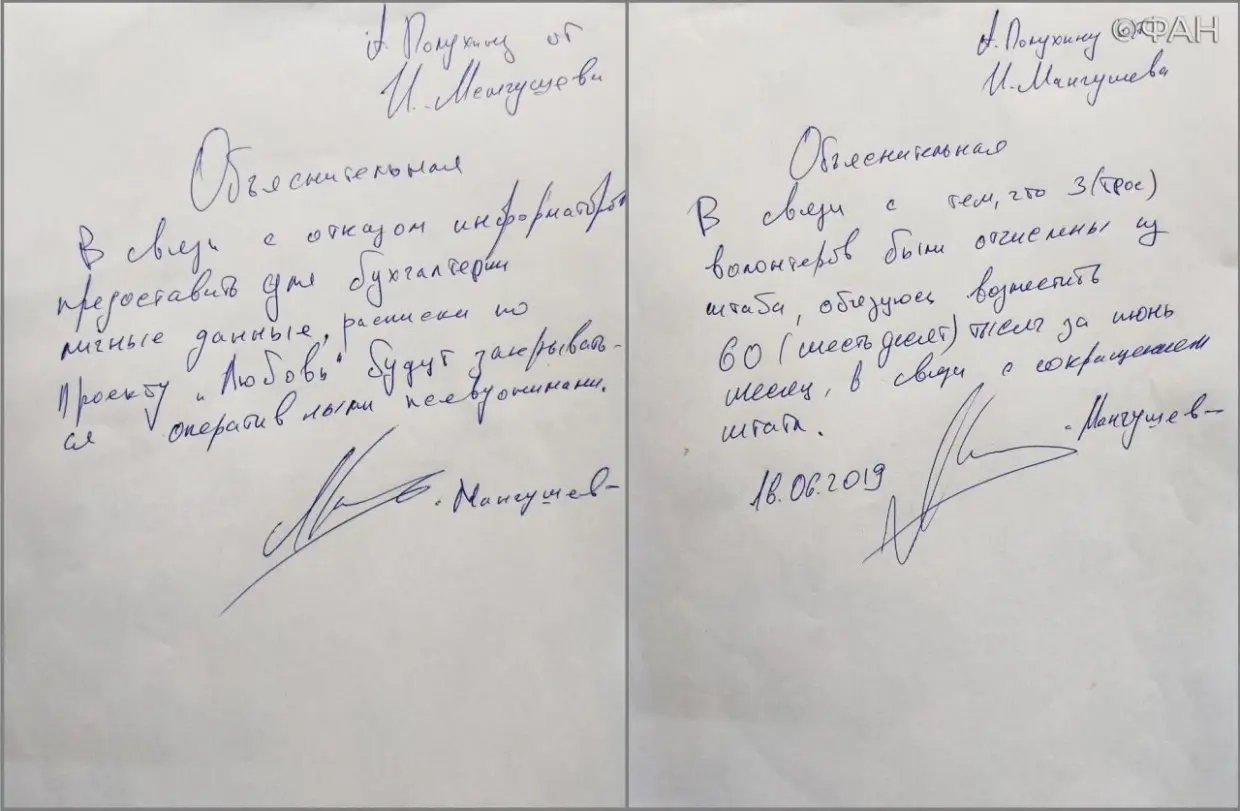 А. Полухину от
И. Мангушева
Объяснительная
В связи с отказом информаторов
предоставить для бухгалтерии
личные данные, расписки по
Проекту „Любовь" будут закрывать-
ся оперативными псевдонимами.
Мангушев
©ФАН
А. Полухину от
И. Мангушева
Объяснительная
В связи с тем, что 3 (трое)
волонтеров были отчислены из
штаба, обязуюсь возместить
60 (шестьдесят) тысяч за июнь
месяц, в связи с сокращением
штата.
Мангушев
18.06.2019